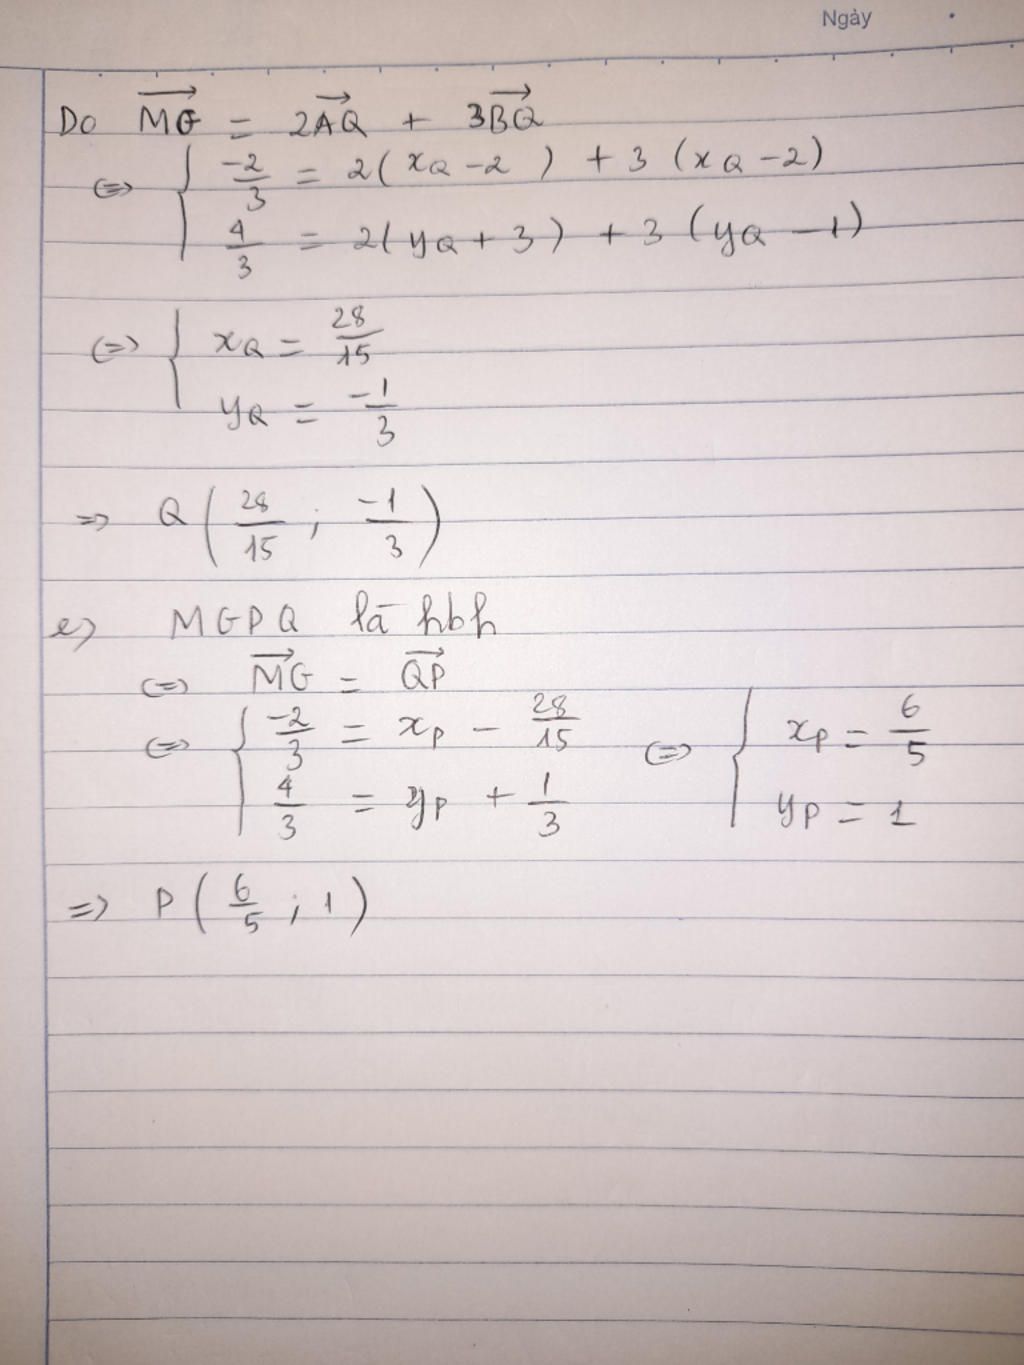 Ngày
Do $\overrightarrow{MG} = 2\overrightarrow{AQ} + 3\overrightarrow{BQ}$
$\Leftrightarrow \begin{cases} \frac{-2}{3} = 2(x_Q - 2) + 3(x_Q - 2) \\ \frac{4}{3} = 2(y_Q + 3) + 3(y_Q - 1) \end{cases}$
$\Leftrightarrow \begin{cases} x_Q = \frac{28}{15} \\ y_Q = \frac{-1}{3} \end{cases}$
$\Rightarrow Q\left(\frac{28}{15}; \frac{-1}{3}\right)$
e) MGPQ là hbh
$\Leftrightarrow \overrightarrow{MG} = \overrightarrow{QP}$
$\Leftrightarrow \begin{cases} \frac{-2}{3} = x_P - \frac{28}{15} \\ \frac{4}{3} = y_P + \frac{1}{3} \end{cases} \Leftrightarrow \begin{cases} x_P = \frac{6}{5} \\ y_P = 1 \end{cases}$
$\Rightarrow P\left(\frac{6}{5}; 1\right)$